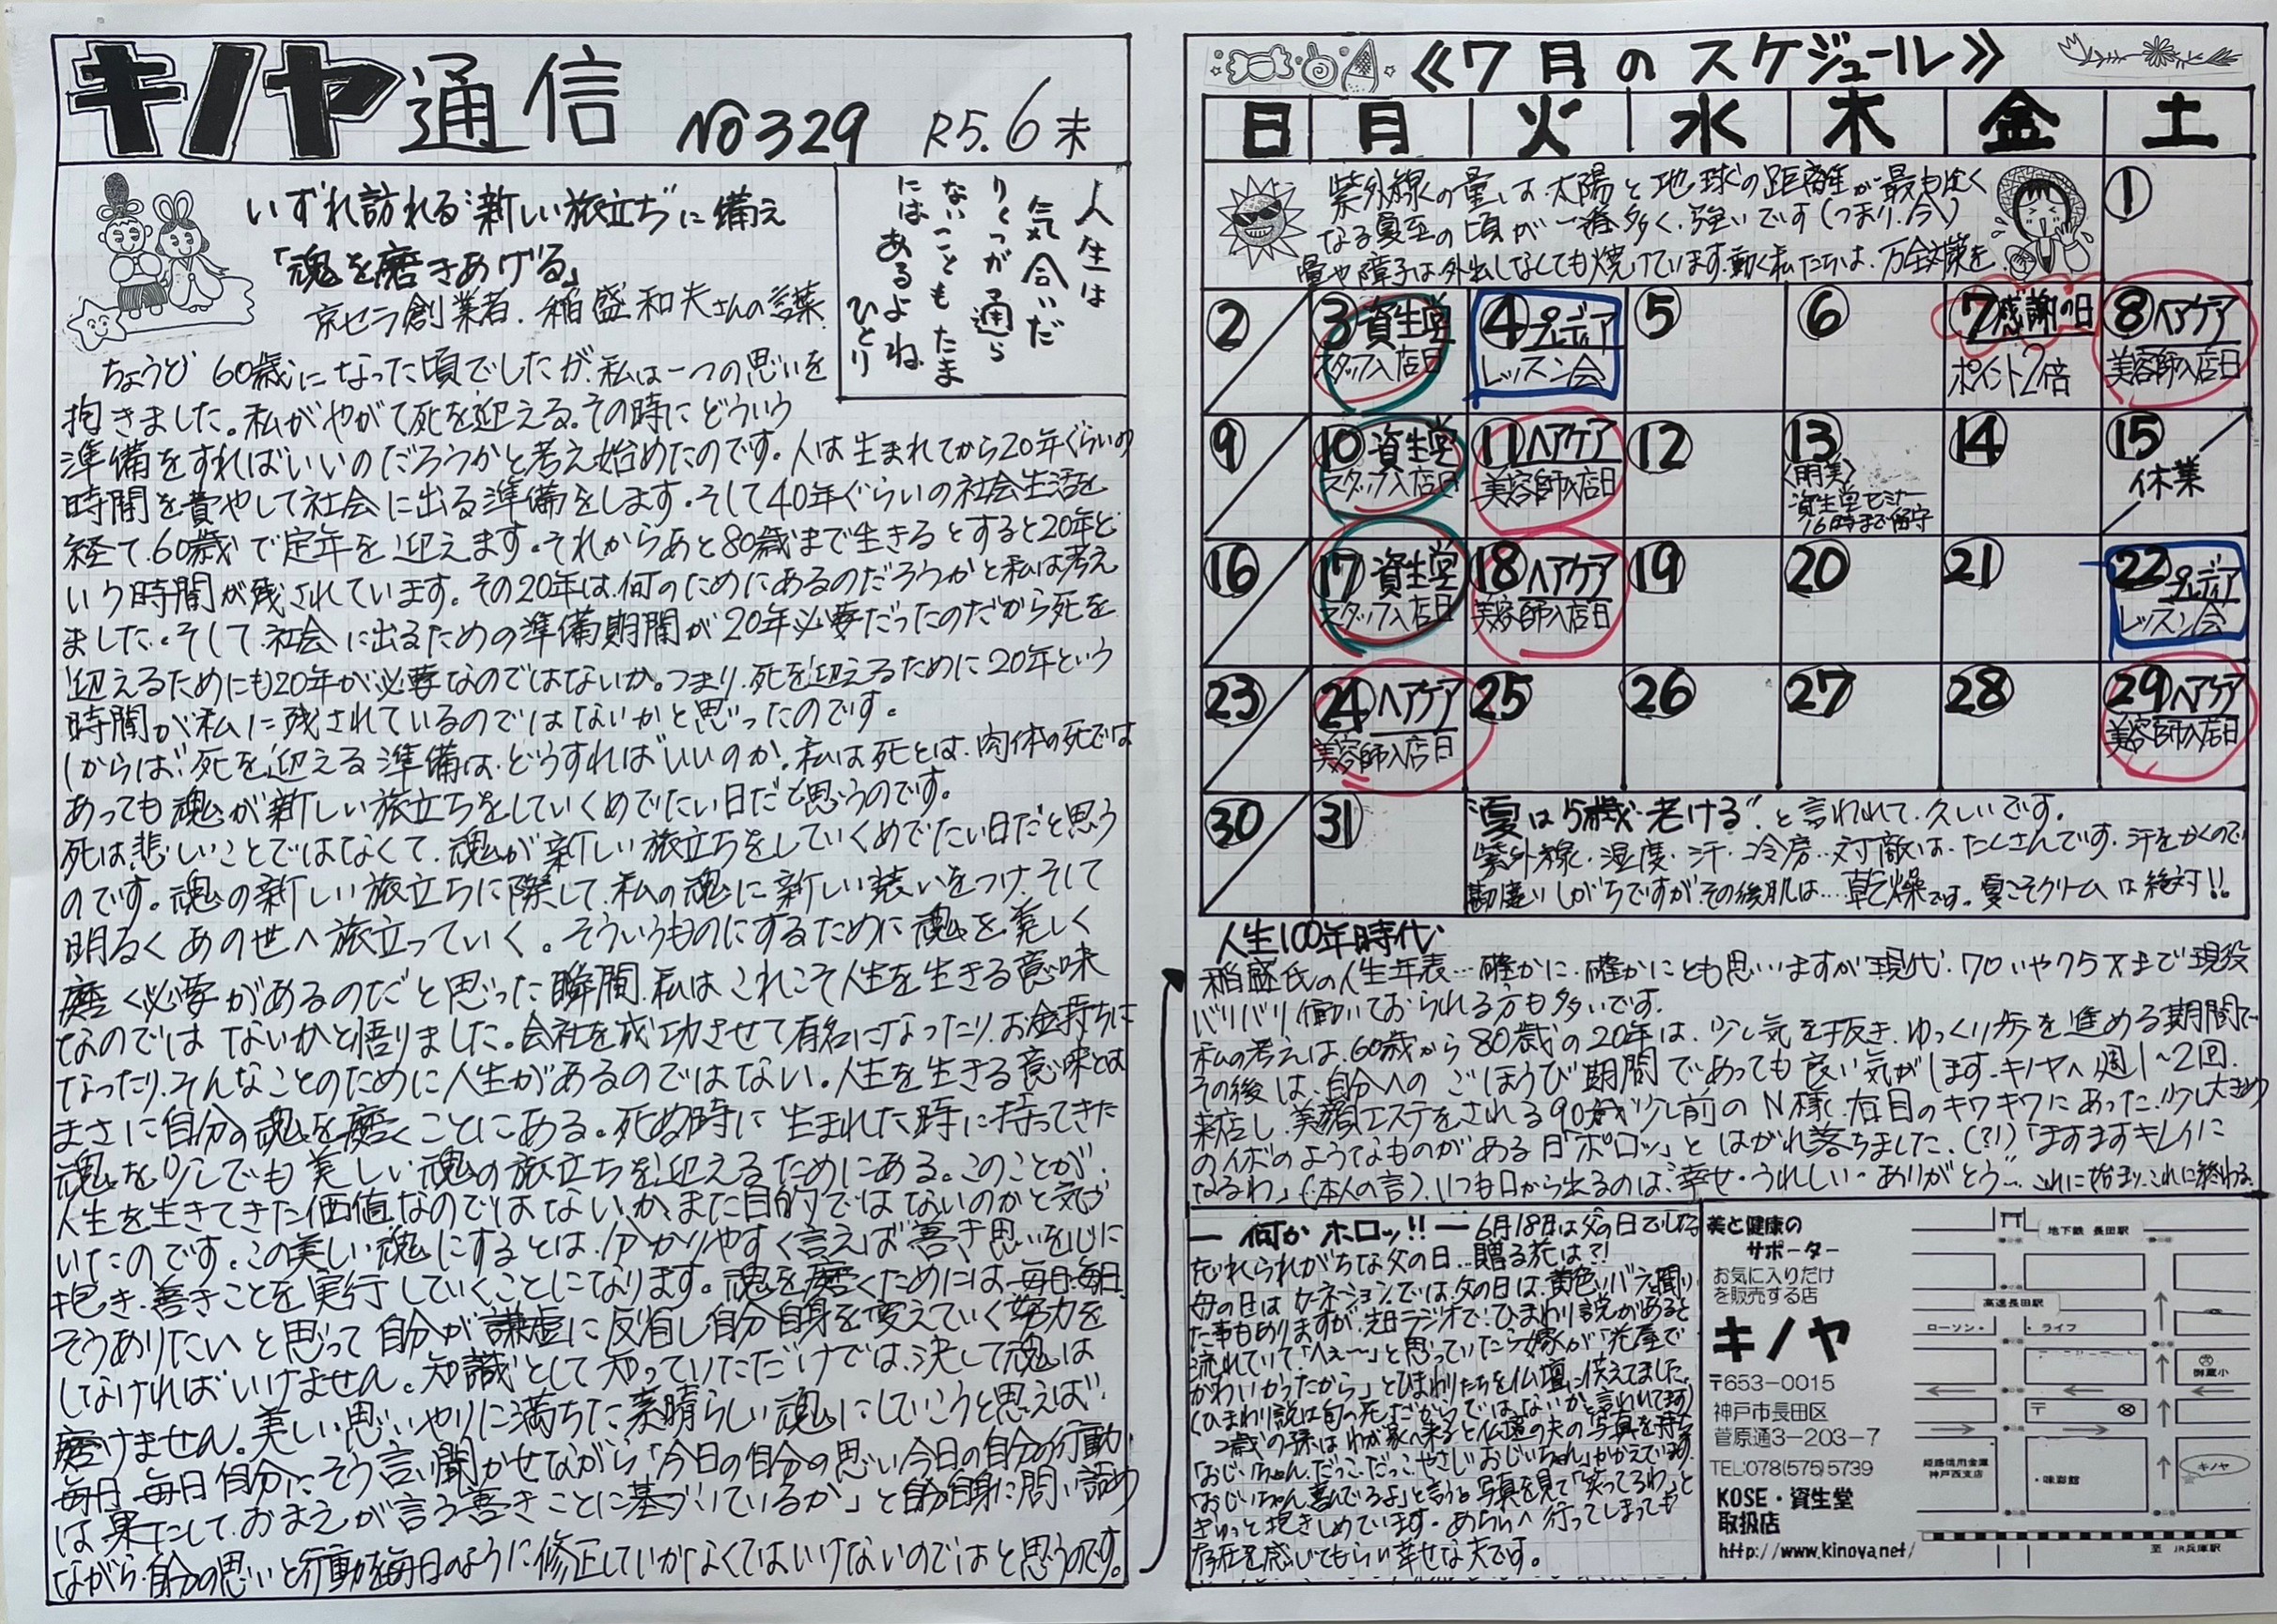 キノヤ通信 №329 R5.6末
いずれ訪れる新しい旅立ちに備え
「魂を磨きあげる」
京セラ創業者.稲盛和夫さんの言葉.
人生は
気合いだ
りくつが通ら
ないこともたま
にはあるよね
ひとり
ちょうど60歳になった頃でしたが、私は一つの思いを
抱きました。私がやがて死を迎える.その時にどういう
準備をすればいいのだろうかと考え始めたのです。人は生まれてから20年ぐらいの
時間を費やして社会に出る準備をします.そして40年ぐらいの社会生活を
経て.60歳で定年を迎えます。それからあと80歳まで生きるとすると20年と
いう時間が残されています。その20年は.何のためにあるのだろうかと私は考え
ました.そして.社会に出るための準備期間が20年必要だったのだから死を
迎えるためにも20年が必要なのではないか。つまり.死を迎えるために20年という
時間が私に残されているのではないかと思ったのです。
しからば、死を迎える準備は.どうすればいいのか.私は死とは.肉体の死では
あっても魂が新しい旅立ちをしていくめでたい日だと思うのです。
死は悲しいことではなくて.魂が新しい旅立ちをしていくめでたい日だと思う
のです。魂の新しい旅立ちに際して.私の魂に新しい装いをつけ.そして
明るくあの世へ旅立っていく。そういうものにするために魂を美しく
磨く必要があるのだと思った瞬間.私はこれこそ人生を生きる意味
なのではないかと悟りました。会社を成功させて有名になったり.お金持ちに
なったり.そんなことのために人生があるのではない。人生を生きる意味とは
まさに自分の魂を磨くことにある。死ぬ時に生まれた時に持ってきた
魂を少しでも美しい魂の旅立ちを迎えるためにある。このことが.
人生を生きてきた価値なのではないか.また目的ではないのかと気が
いたのです。この美しい魂にするとは.分かりやすく言えば善き思いを心に
抱き.善きことを実行していくことになります。魂を磨くためには.毎日.毎日.
そうありたいと思って自分が謙虚に反省し自分自身を変えていく努力を
しなければいけません。知識として知っていただけでは.決して魂は
磨けません。美しい思いやりに満ちた素晴らしい魂にしていこうと思えば.
毎日.毎日自分にそう言い聞かせながら「今日の自分の思い今日の自分の行動
は果たして.おまえが言う善きことに基づいているか」と自分自身に問い詰め
ながら.自分の思いと行動を毎日のように修正していかなくてはいけないのではと思うのです。
≪7月のスケジュール≫
日 月 火 水 木 金 土
紫外線の量は太陽と地球の距離が最も近く
なる夏至の頃が一番多く.強いです(つまり.今)
畳や障子は.外出しなくても焼けています.動く私たちは.万全対策を
①
② ③資生堂 ④プレディア ⑤ ⑥ ⑦感謝の日 ⑧ヘアケア
スタッフ入店日 レッスン会 ポイント2倍 美容師入店日
⑨ ⑩資生堂 ⑪ヘアケア ⑫ ⑬ ⑭ ⑮
スタッフ入店日 美容師入店日 〈朋美〉 休業
資生堂セミナー
16時まで留守
⑯ ⑰資生堂 ⑱ヘアケア ⑲ ⑳ ㉑ ㉒プレディア
スタッフ入店日 美容師入店日 レッスン会
㉓ ㉔ヘアケア ㉕ ㉖ ㉗ ㉘ ㉙ヘアケア
美容師入店日 美容師入店日
㉚ ㉛
“夏は5歳老ける”と言われて.久しいです。
紫外線.湿度.汗.冷房…対敵は.たくさんです.汗をかくので
勘違いしがちですが.その後肌は…乾燥です。夏こそクリームは絶対!!
人生100年時代.
稲盛氏の人生年表…確かに.確かにとも思いますが現代.70いや75才まで現役
バリバリ働いておられる方も多いです.
私の考えは.60歳から80歳の20年は.少し気を抜き.ゆっくり歩を進める期間で
その後は.自分へのごほうび期間であっても良い気がします.キノヤへ週1~2回.
来店し.美顔エステをされる90歳少し前のN様.右目のキワキワにあった.少し大きめ
のイボのようなものがある日「ポロッ」とはがれ落ちました.(?!)「ますますキレイに
なるわ」(本人の言).いつも口から出るのは“幸せ・うれしい・ありがとう”…これに始まり.これに終わる.
― 何かホロッ!! ― 6月18日は父の日でした.
忘れられがちな父の日…贈る花は?!
母の日はカーネーションでは.父の日は.黄色いバラと聞い
た事もありますが.先日ラジオで.ひまわり説があると
流れていて.「へぇ~」と思っていたら.嫁が「花屋で
かわいかったから」とひまわりたちを仏壇に供えてました.
(ひまわり説は旬の花だからではないかと言われてます)
2歳の孫はわが家へ来ると仏壇の夫の写真を持ち
「おじいちゃん.だっこ.だっこ.やさしいおじいちゃん」かかえています.
「おじいちゃん喜んでいるよ」と言うと写真を見て「笑ってるわ」と
ぎゅっと抱きしめています.あちらへ行ってしまっても
存在を感じてもらい幸せな夫です。
美と健康の
サポーター
お気に入りだけ
を販売する店
キノヤ
〒653-0015
神戸市長田区
菅原通3-203-7
TEL:078(575)5739
KOSE・資生堂
取扱店
http://www.kinoya.net/
地下鉄 長田駅
高速長田駅
ローソン・ ・ライフ
御蔵小
〒
姫路信用金庫
神戸西支店
・味彩館
キノヤ
至 JR兵庫駅